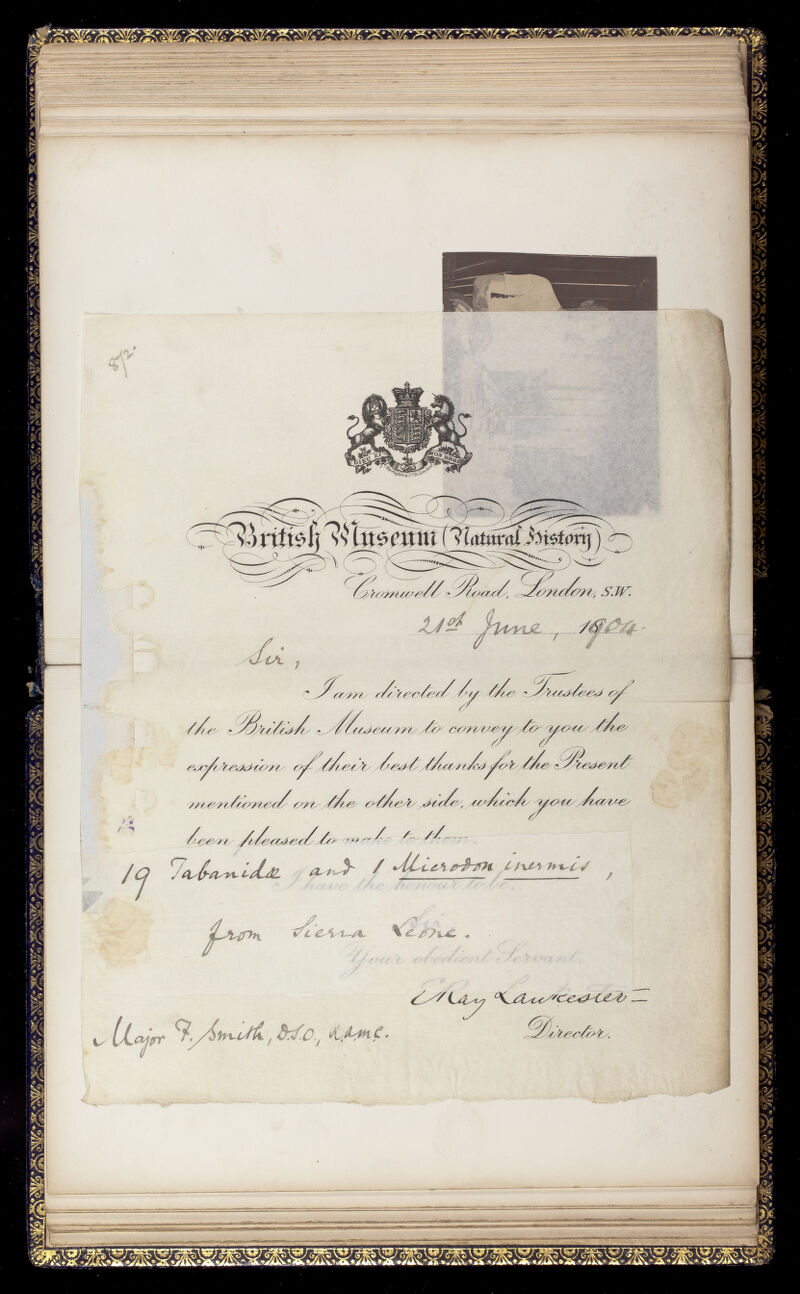 872.
DIEU ET MON DROIT
British Museum (Natural History)
Cromwell Road, London, S.W.
21st June, 1904.
Sir,
I am directed by the Trustees of
the British Museum to convey to you the
expression of their best thanks for the Present
mentioned on the other side, which you have
been pleased to make to them.
19 Tabanidæ and 1 Microdon inermis,
I have the honour to be,
Sir,
from Sierra Leone.
Your obedient Servant,
E Ray Lankester
Director.
Major F. Smith, D.S.O., R.A.M.C.